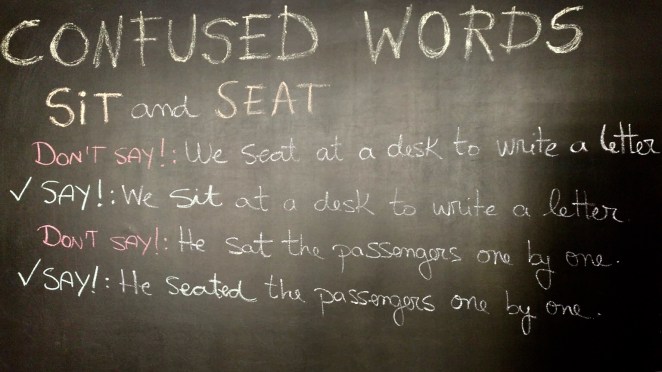 CONFUSED WORDS
SiT and SEAT
DON'T SAY!: We seat at a desk to write a letter
✓ SAY!: We sit at a desk to write a letter
DON'T SAY!: He sat the passengers one by one.
✓ SAY!: He seated the passengers one by one.